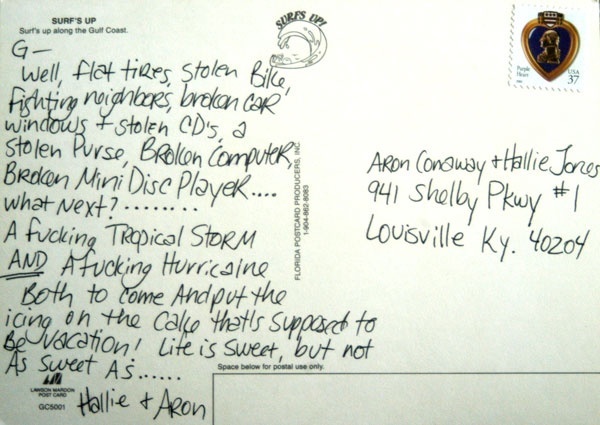 SURF'S UP
Surf's up along the Gulf Coast.
SURF'S UP!
Purple
Heart
USA
37
G—
Well, flat tires, stolen Bike,
Fighting neighbors, broken car
windows + stolen CD's, a
Stolen Purse, Broken Computer,
Broken Mini Disc Player....
What Next?.........
A fucking Tropical Storm
AND A fucking Hurricaine
Both to come And put the
icing on the Cake thats supposed to
Be vacation! Life is sweet, but not
As sweet As......
Hallie + Aron
FLORIDA POSTCARD PRODUCERS, INC.
1-904-862-8083
Aron Conaway + Hallie Jones
941 Shelby Pkwy #1
Louisville Ky. 40204
Space below for postal use only.
LAWSON MARDON
POST CARD
GC5001